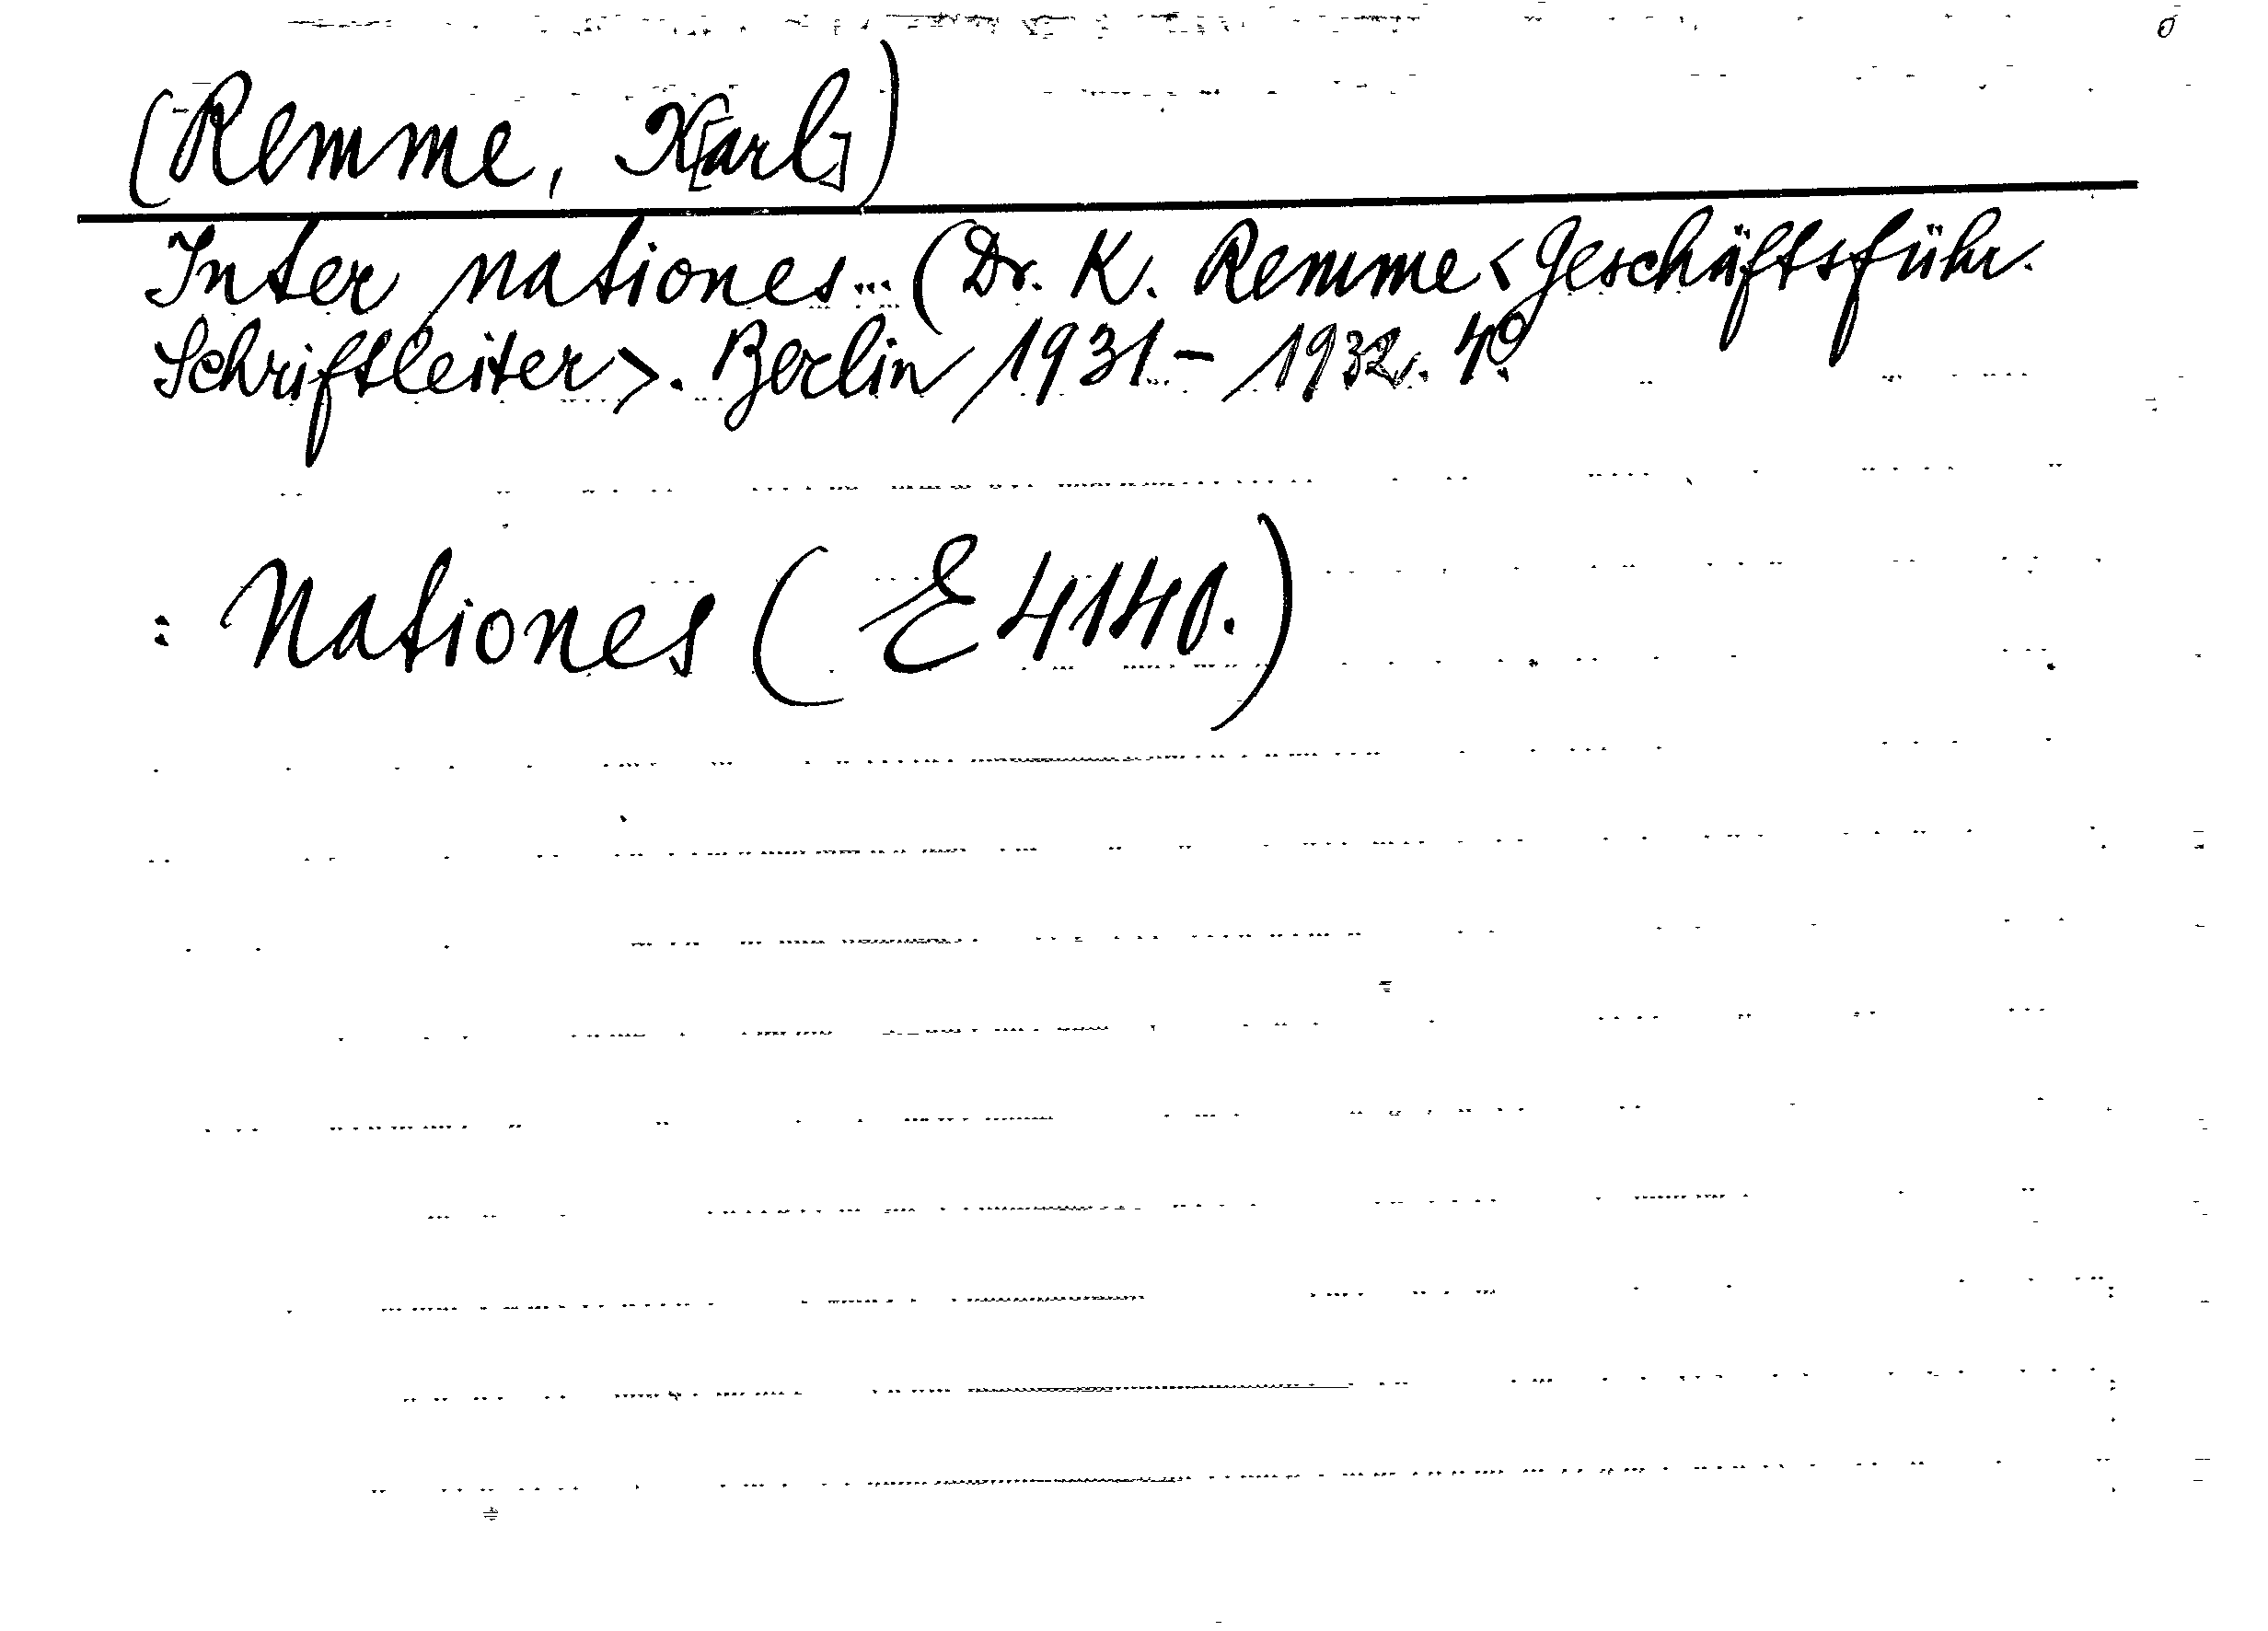 (Remme, K[arl])
Inter nationes... (Dr. K. Remme < Geschäftsführ.
Schriftleiter>. Berlin 1931-1932. 4°.
: Nationes (E 4140.)